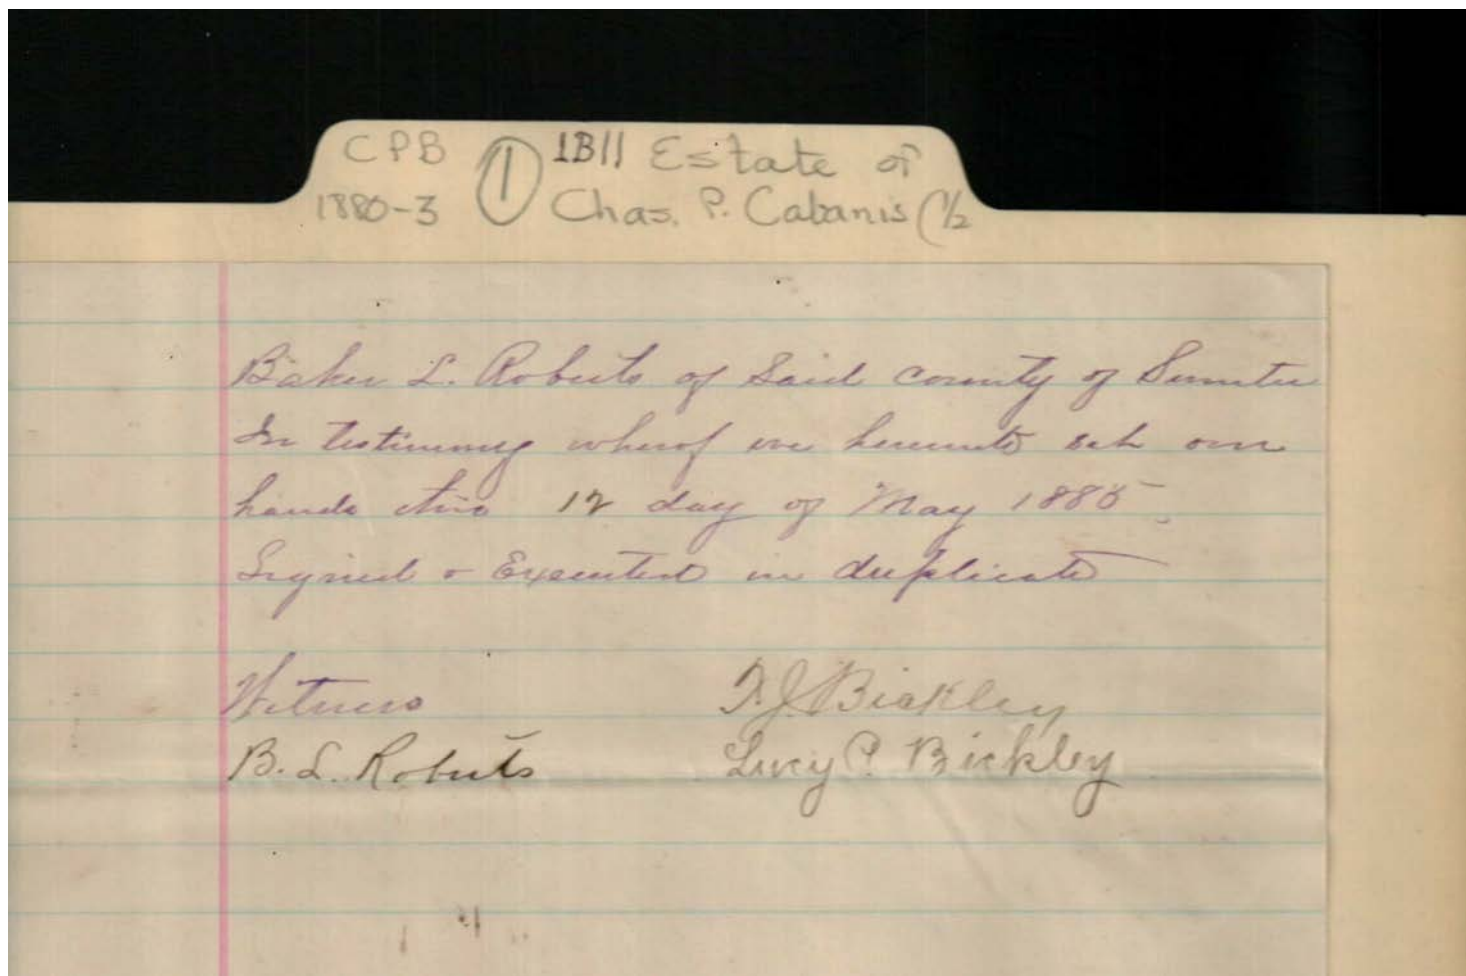 CPB
1880-3
1
1B11 Estate of
Chas. P. Cabanis (1/2
Baker L. Roberts of Said county of Sumter
In testimony wherof we hereunto set our
hands this 12 day of May 1885.
Signed & Executed in duplicate
Witness
B. L. Roberts
Bickley
Lucy P. Bickley